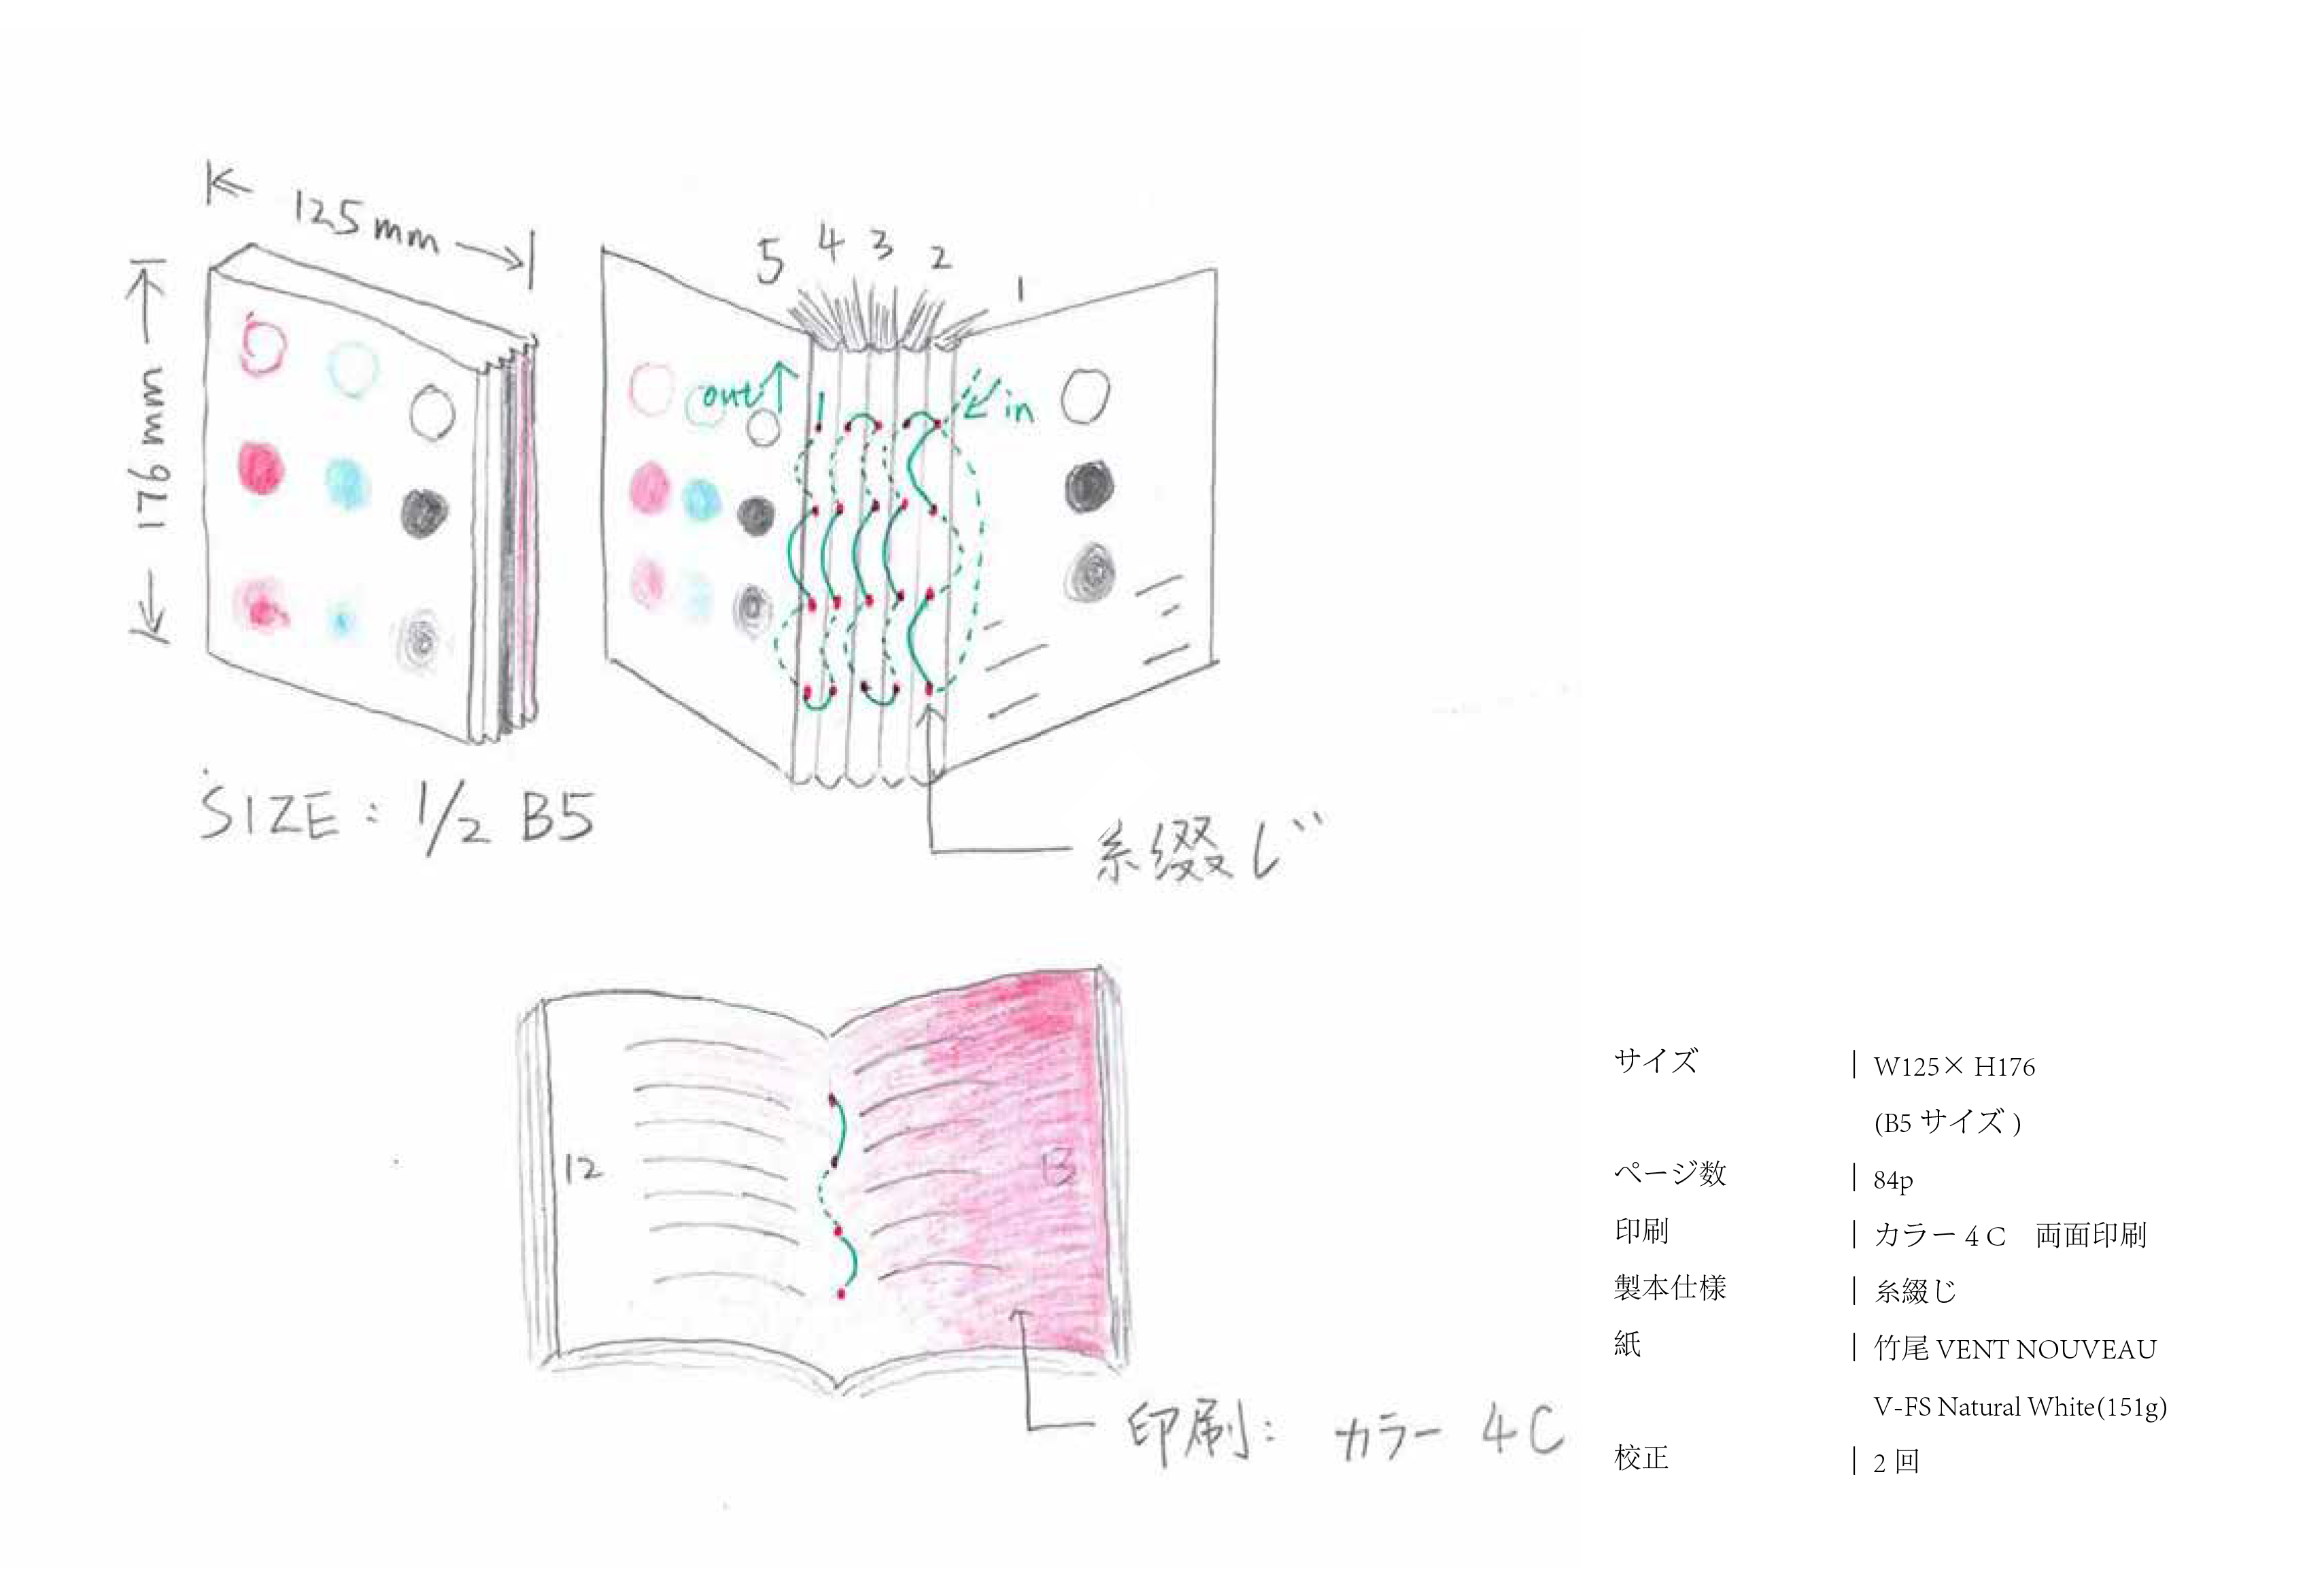 125mm
176mm
SIZE: 1/2 B5
5 4 3 2 1
out
in
糸綴じ
12
13
印刷: カラー 4C
サイズ | W125× H176
(B5 サイズ )
ページ数 | 84p
印刷 | カラー 4 C　両面印刷
製本仕様 | 糸綴じ
紙 | 竹尾 VENT NOUVEAU
V-FS Natural White(151g)
校正 | 2 回